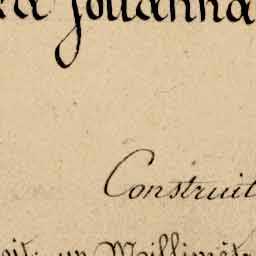 Johanna
Construit
un Millimètr